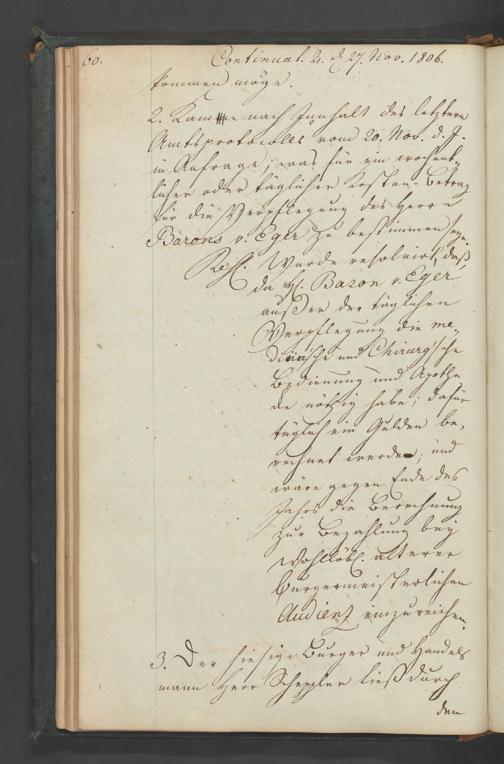 60. Continuat. 2. d. 27. Nov. 1806.
kommen möge.
2. Kam nach Innhalt des letztern
Amtsprotocolls vom 20. Nov. d. J.
in Anfrage; was für ein wochent-
licher oder täglicher Kosten-Betrag
für die Verpflegung des Herrn
Barons v. Eger zu bestimmen seye.
Res. Wurde resolvirt, daß,
da H. Baron v. Eger
außer der täglichen
Verpflegung die me-
dicinische und Chirurgische
Bedienung und Apothe-
ke nöthig habe; dafür
täglich ein Gulden be-
rechnet werde; und
wäre gegen Ende des
Jahrs die Berechnung
zur Bezahlung bey
Wohllöbl. älterer
Burgermeisterlichen
Audienz einzureichen.
3. Der hiesige Burger und Handels
mann Herr Scheppler ließ durch
den